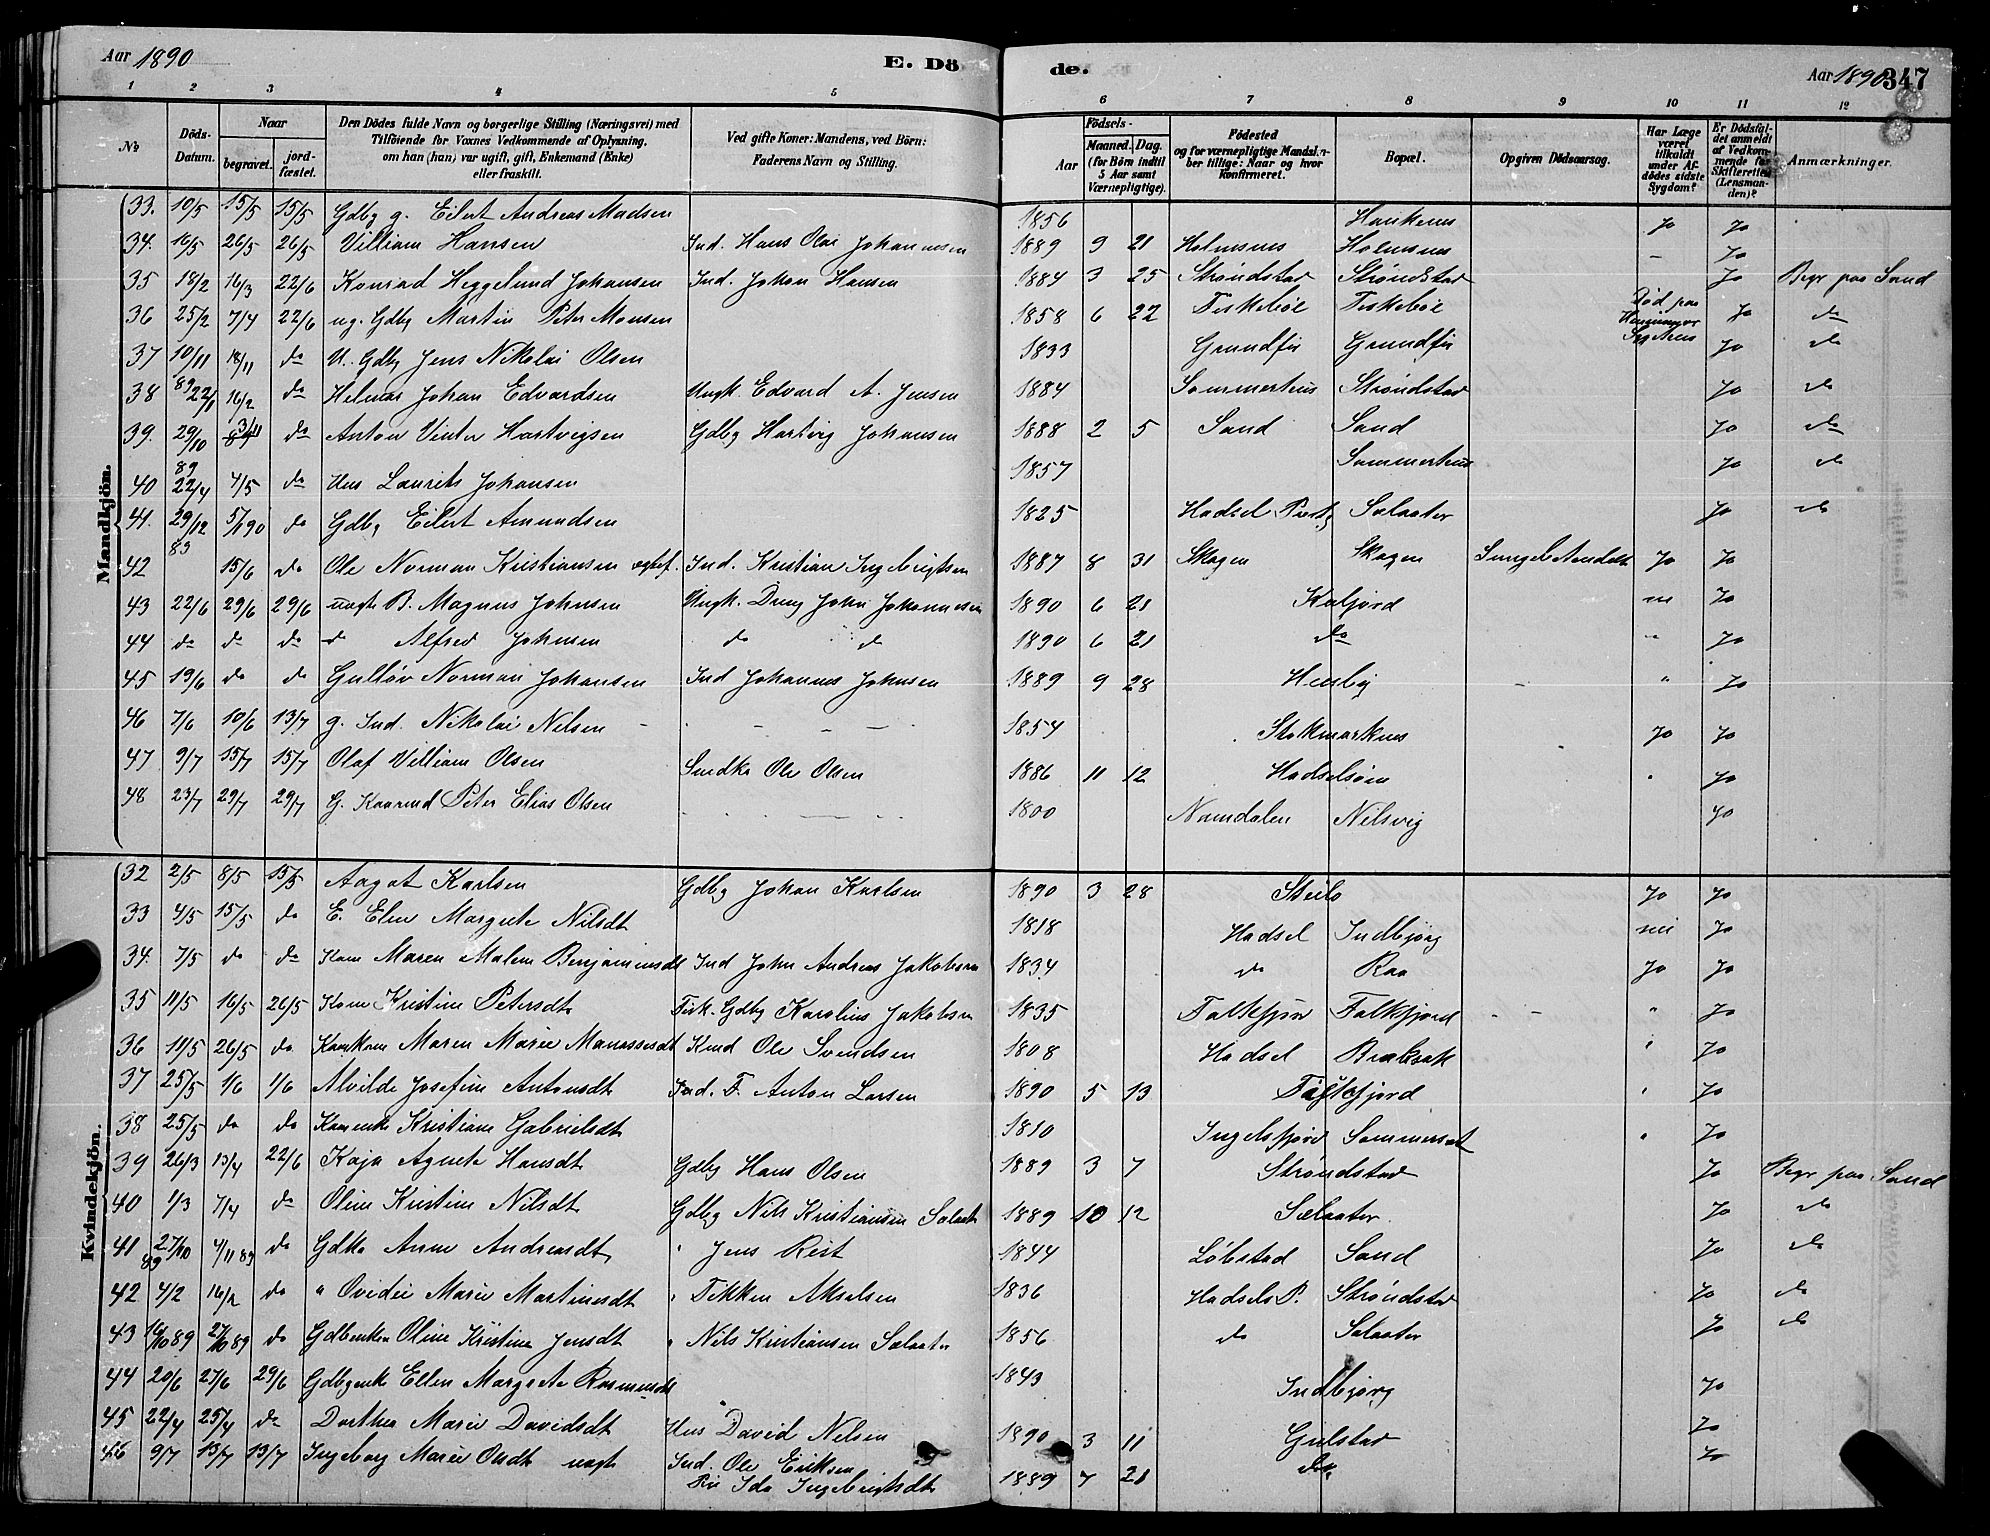 Aar 1890 E. Dö
de. Aar 1890 347
1 2 3 4 5 6 7 8 9 10 11 12
No
Döds-Datum.
Naar
begravet.
jord-fæstet.
Den Dödes fulde Navn og borgerlige Stilling (Næringsvei) med
Tilföiende for Voxnes Vedkommende af Oplysning,
om han (hun) var ugift, gift, Enkemand (Enke)
eller fraskilt.
Ved gifte Koner: Mandens, ved Börn:
Faderens Navn og Stilling.
Födsels-
Aar
Maaned. Dag.
(for Börn indtil
5 Aar samt
Værnepligtige).
Födested
og for værnepligtige Mandskaber tillige: Naar og hvor
Konfirmeret.
Bopæl.
Opgiven Dödsaarsag.
Har Læge
været
tilkaldt
under Afdödes sidste
Sygdom?
Er Dödsfaldet anmeldt
af Vedkommende for
Skifteretten
(Lensmanden)?
Anmærkninger.
Mandkjön.
33. 10/5 15/5 15/5 Gdbg g. Eilert Andreas Madsen 1856 Haukenes Jo Jo
34. 16/5 26/5 26/5 Villiam Hansen Ind. Hans Olai Johannesen 1889 9 21 Holmsnes Holmsnes - Jo
35 18/2 16/3 22/6 Konrad Heggelund Johansen Ind. Johan Hansen 1884 3 25 Strøndstad Strøndstad Jo Begr paa Sand
36 25/2 7/4 22/6 ug. Gdbg Martin Peter Monsen 1858 6 22 Fiskebøl Fiskebøl Død paa Jo do
37 10/11 18/11 do U. Gdbg Jens Nikolai Olsen 1833 Grundfør Grundfør Jo do
38 89 22/11 16/2 do Helmer Johan Edvardsen Ungk. Edvard A. Jensen 1884 Sommerhus Strøndstad Jo do
39. 29/10 3/11 do Anton Vinter Hartvigsen Gdbg Hartvig Johansen 1888 2 5 Sand Sand Jo do
40 89 22/4 4/5 do Hus Laurits Johansen 1857 Sommerhus Jo do
41. 29/12 89 5/1 90 do Gdbg Eilert Amundsen 1825 Hadsel Præstg Sælaater Jo do
42 15/6 do Ole Norman Kristiansen ægtef. Ind. Kristian Ingebrigtsen 1887 8 31 Skagen Skagen Jo Jo
43 22/6 29/6 29/6 uægte B. Magnus Johnsen Ungk. Dreng John Johannesen 1890 6 21 Kaljord nei Jo
44 do do do do Alfred Johnsen do do 1890 6 21 do " Jo
45 19/6 do do Gulløv Norman Johansen Ind Johannes Johnsen 1889 9 28 Husby " Jo
46 7/6 10/6 13/7 g. Ind. Nikolai Nilsen - - - - 1854 Stokmarknes Jo Jo
47 9/7 15/7 15/7 Olaf Villiam Olsen Ole Olsen 1886 11 12 Hadseløen " Jo
48 23/7 29/7 29/7 G. Kaarmd Peter Elias Olsen 1800 Namdalen Nilsvig Jo
Kvindekjön.
32 2/5 8/5 15/5 Aagot Karlsen Gdbg Johan Karlsen 1890 3 28 Steilo Jo Jo
33 4/5 15/5 do E. Elen Margrete Nilsdt 1818 Hadsel Indbjørg nei Jo
34. 7/5 do do Kone Maren Malene Benjaminsdt Ind John Andreas Jakobsen 1834 do Raa Jo Jo
35 11/5 16/5 26/5 Kone Kristine Petersdt Fisk. Gdbg Karolius Jakobsen 1835 Falkfjor Falkfjord - - " Jo
36 11/5 26/5 do Kaarkone Maren Marie Manassesdt Kmd Ole Svendsen 1808 Hadsel " Jo
37 25/5 1/6 1/6 Alvilde Josefine Antonsdt Ind. F. Anton Larsen 1890 5 13 Falkfjord " Jo
38 25/5 do do Kaarenke Kristiane Gabrielsdt 1810 Ingelsfjord Sommersæt " Jo
39 26/3 13/4 22/6 Kaja Agnete Hansdt Gdbg Hans Olsen 1889 3 7 Strøndstad Jo Begr paa Sand
40 1/3 7/4 do Oline Kristine Nilsdt Gdbg Nils Kristiansen Sælaat 1889 10 12 Sælaater Jo do
41 27/10 89 4/11 89 do Gdko Anne Andreasdt " Jens Rist 1844 Løbstad Sand Jo do
42 4/2 16/2 do " Ovidie Marie Martinusdt " Fikken Akselsen 1836 Hadsels P. Strøndstad Jo do
43 16/10 89 27/10 89 do Gdbenken Oline Kristine Jensdt " Nils Kristiansen Sælaater 1856 do Sælaater Jo do
44 20/6 27/6 29/6 Gdbgenke Ellen Margrete Rasmusdt 1843 Indbjørg Jo
45 22/4 25/4 do Dorthea Marie Davidsdt Hus David Nilsen 1890 3 11 Gulstad Jo
46 9/7 13/7 13/7 Ingeborg Marie Olsdt uægt Ind. Ole Eriksen
Pige Ida Ingebrigtsdt 1889 7 21 do Jo